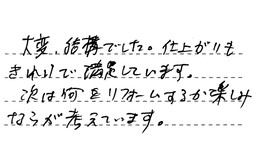 大変、結構でした。仕上がりも
きれいで満足しています。
次は何をリフォームするか楽しみ
ながら考えています。